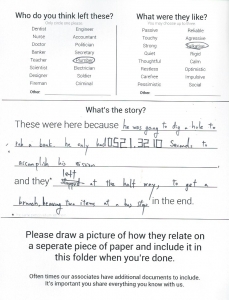 Who do you think left these?
What were they like?
Dentist Engineer
Nurse Accountant
Doctor Politician
Banker Secretary
Teacher Plumber
Scientist Electrician
Designer Soldier
Fireman Criminal
Other
Passive Reliable
Touchy Agressive
Strong
Quiet Rigid
Thoughtful Calm
Restless Optimistic
Carefree Impulsive
Pessimistic Social
Other
What's the story?
These were here because he was going to dig a hole to
rob a bank. he only had 0521.3210 seconds to
accomplish his mission
left
and they at the half way, to get a
brunch, leaving two items at a bus stop. in the end.
Please draw a picture of how they relate on
a seperate piece of paper and include it in
this folder when you're done.
Often times our associates have additional documents to include.
It's important you share everything you know with us.